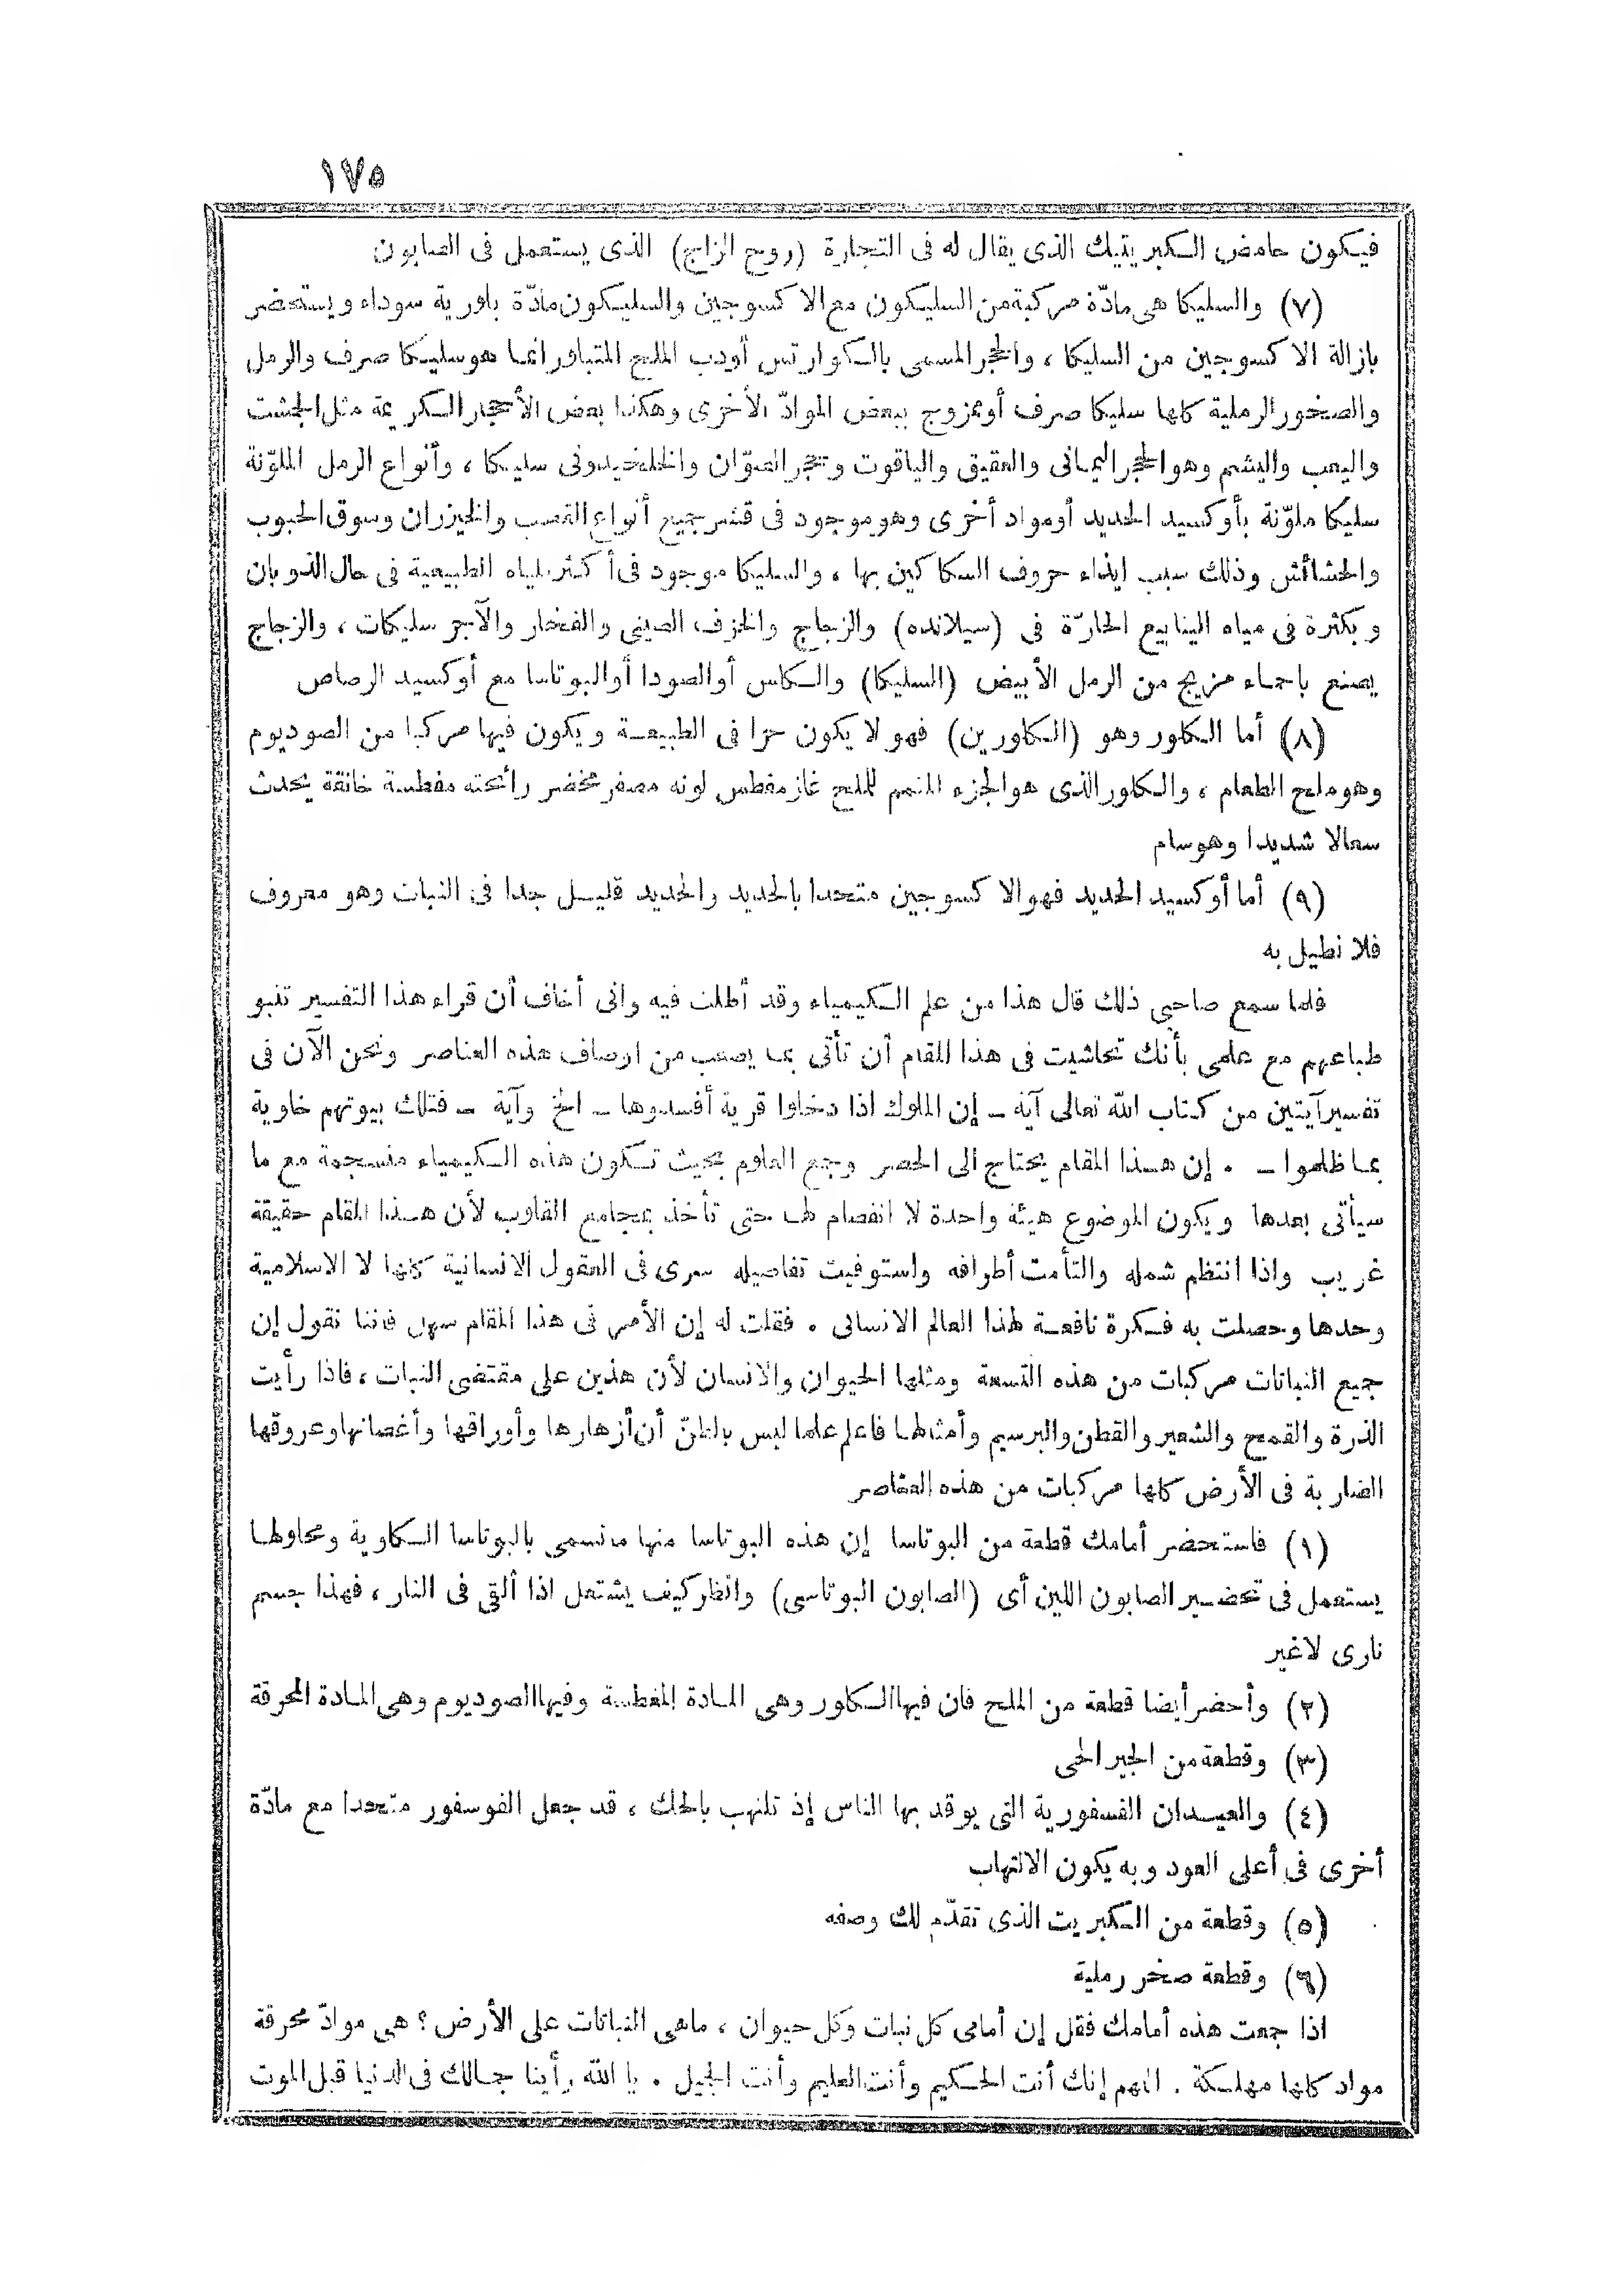 ١٧٥
فيكون حامض الكبريتيك الذى يقال له فى التجارة (روح الزاج) الذى يستعمل فى الصابون
(٧) والسليكا هى مادّة مركبة من السليكون مع الاكسوجين والسليكون مادّة بلورية سوداء ويستحضر
بازالة الاكسوجين من السليكا ، والحجر المسمى بالكوارتس أودب الملح المتبلور انما هو سليكا صرف والرمل
والصخور الرملية كلها سليكا صرف أوممزوج ببعض الموادّ الأخرى وهكذا بعض الأحجار الكريمة مثل الجشت
واليصب واليشم وهو الحجر اليمانى والعقيق والياقوت وحجر الصوّان والخلفيدونى سليكا ، وأنواع الرمل الملوّنة
سليكا ملوّنة بأوكسيد الحديد أومواد أخرى وهو موجود فى قشر جميع أنواع القصب والخيزران وسوق الحبوب
والحشائش وذلك سبب ايذاء حروف السكاكين بها ، والسليكا موجود فى أكثر المياه الطبيعية فى حال الذوبان
وبكثرة فى مياه الينابيع الحارّة فى (سيلانده) والزجاج والخزف الصينى والفخار والآجر سليكات ، والزجاج
يصنع باحماء مزيج من الرمل الأبيض (السليكا) والكلس أوالصودا أوالبوتاسا مع أوكسيد الرصاص
(٨) أما الكلور وهو (الكلورين) فهو لا يكون حرا فى الطبيعة ويكون فيها مركبا من الصوديوم
وهو ملح الطعام ، والكلور الذى هو الجزء المتمم للملح غاز مغطس لونه مصفر مخضر رائحته مغطسة خانقة يحدث
سعالا شديدا وهو سام
(٩) أما أوكسيد الحديد فهو الاكسوجين متحدا بالحديد والحديد قليل جدا فى النبات وهو معروف
فلا نطيل به
فلما سمع صاحبى ذلك قال هذا من علم الكيمياء وقد أطلت فيه وانى أخاف أن قراء هذا التفسير تنبو
طباعهم مع علمى بأنك تحاشيت فى هذا المقام أن تأتى بما يصعب من اوصاف هذه العناصر ونحن الآن فى
تفسير آيتين من كتاب الله تعالى آية ـ إن الملوك اذا دخلوا قرية أفسدوها ـ الخ وآية ـ فتلك بيوتهم خاوية
بما ظلموا ـ . إن هذا المقام يحتاج الى الحصر وجمع العلوم بحيث تكون هذه الكيمياء منسجمة مع ما
سيأتى بعدها ويكون الموضوع هيئة واحدة لا انفصام لها حتى تأخذ بمجامع القلوب لأن هذا المقام حقيقة
غريب واذا انتظم شمله والتأمت أطرافه واستوفيت تفاصيله سرى فى العقول الانسانية كلها لا الاسلامية
وحدها وحصلت به فكرة نافعة لهذا العالم الانسانى . فقلت له إن الأمر فى هذا المقام سهل فاننا نقول إن
جميع النباتات مركبات من هذه التسعة ومثلها الحيوان والانسان لأن هذين على مقتضى النبات ، فاذا رأيت
الذرة والقمح والشعير والقطن والبرسيم وأمثالها فاعلم علما ليس بالظنّ أن أزهارها وأوراقها وأغصانها وعروقها
الضاربة فى الأرض كلها مركبات من هذه العناصر
(١) فاستحضر أمامك قطعة من البوتاسا إن هذه البوتاسا منها ما تسمى بالبوتاسا الكاوية ومحلولها
يستعمل فى تحضير الصابون اللين أى (الصابون البوتاسى) وانظر كيف يشتعل اذا ألقى فى النار ، فهذا جسم
نارى لاغير
(٢) وأحضر أيضا قطعة من الملح فان فيها الكلور وهى المادة المغطسة وفيها الصوديوم وهى المادة المحرقة
(٣) وقطعة من الجير الحى
(٤) والعيدان الفسفورية التى يوقد بها الناس إذ تلتهب بالحك ، قد جعل الفوسفور متحدا مع مادّة
أخرى فى أعلى العود وبه يكون الالتهاب
(٥) وقطعة من الكبريت الذى تقدّم لك وصفه
(٦) وقطعة صخر رملية
اذا جمعت هذه أمامك فقل إن أمامى كل نبات وكل حيوان ، ماهى النباتات على الأرض ؟ هى موادّ محرقة
مواد كلها مهلكة . اللهم إنك أنت الحكيم وأنت العليم وأنت الجميل . يا الله رأينا جمالك فى الدنيا قبل الموت